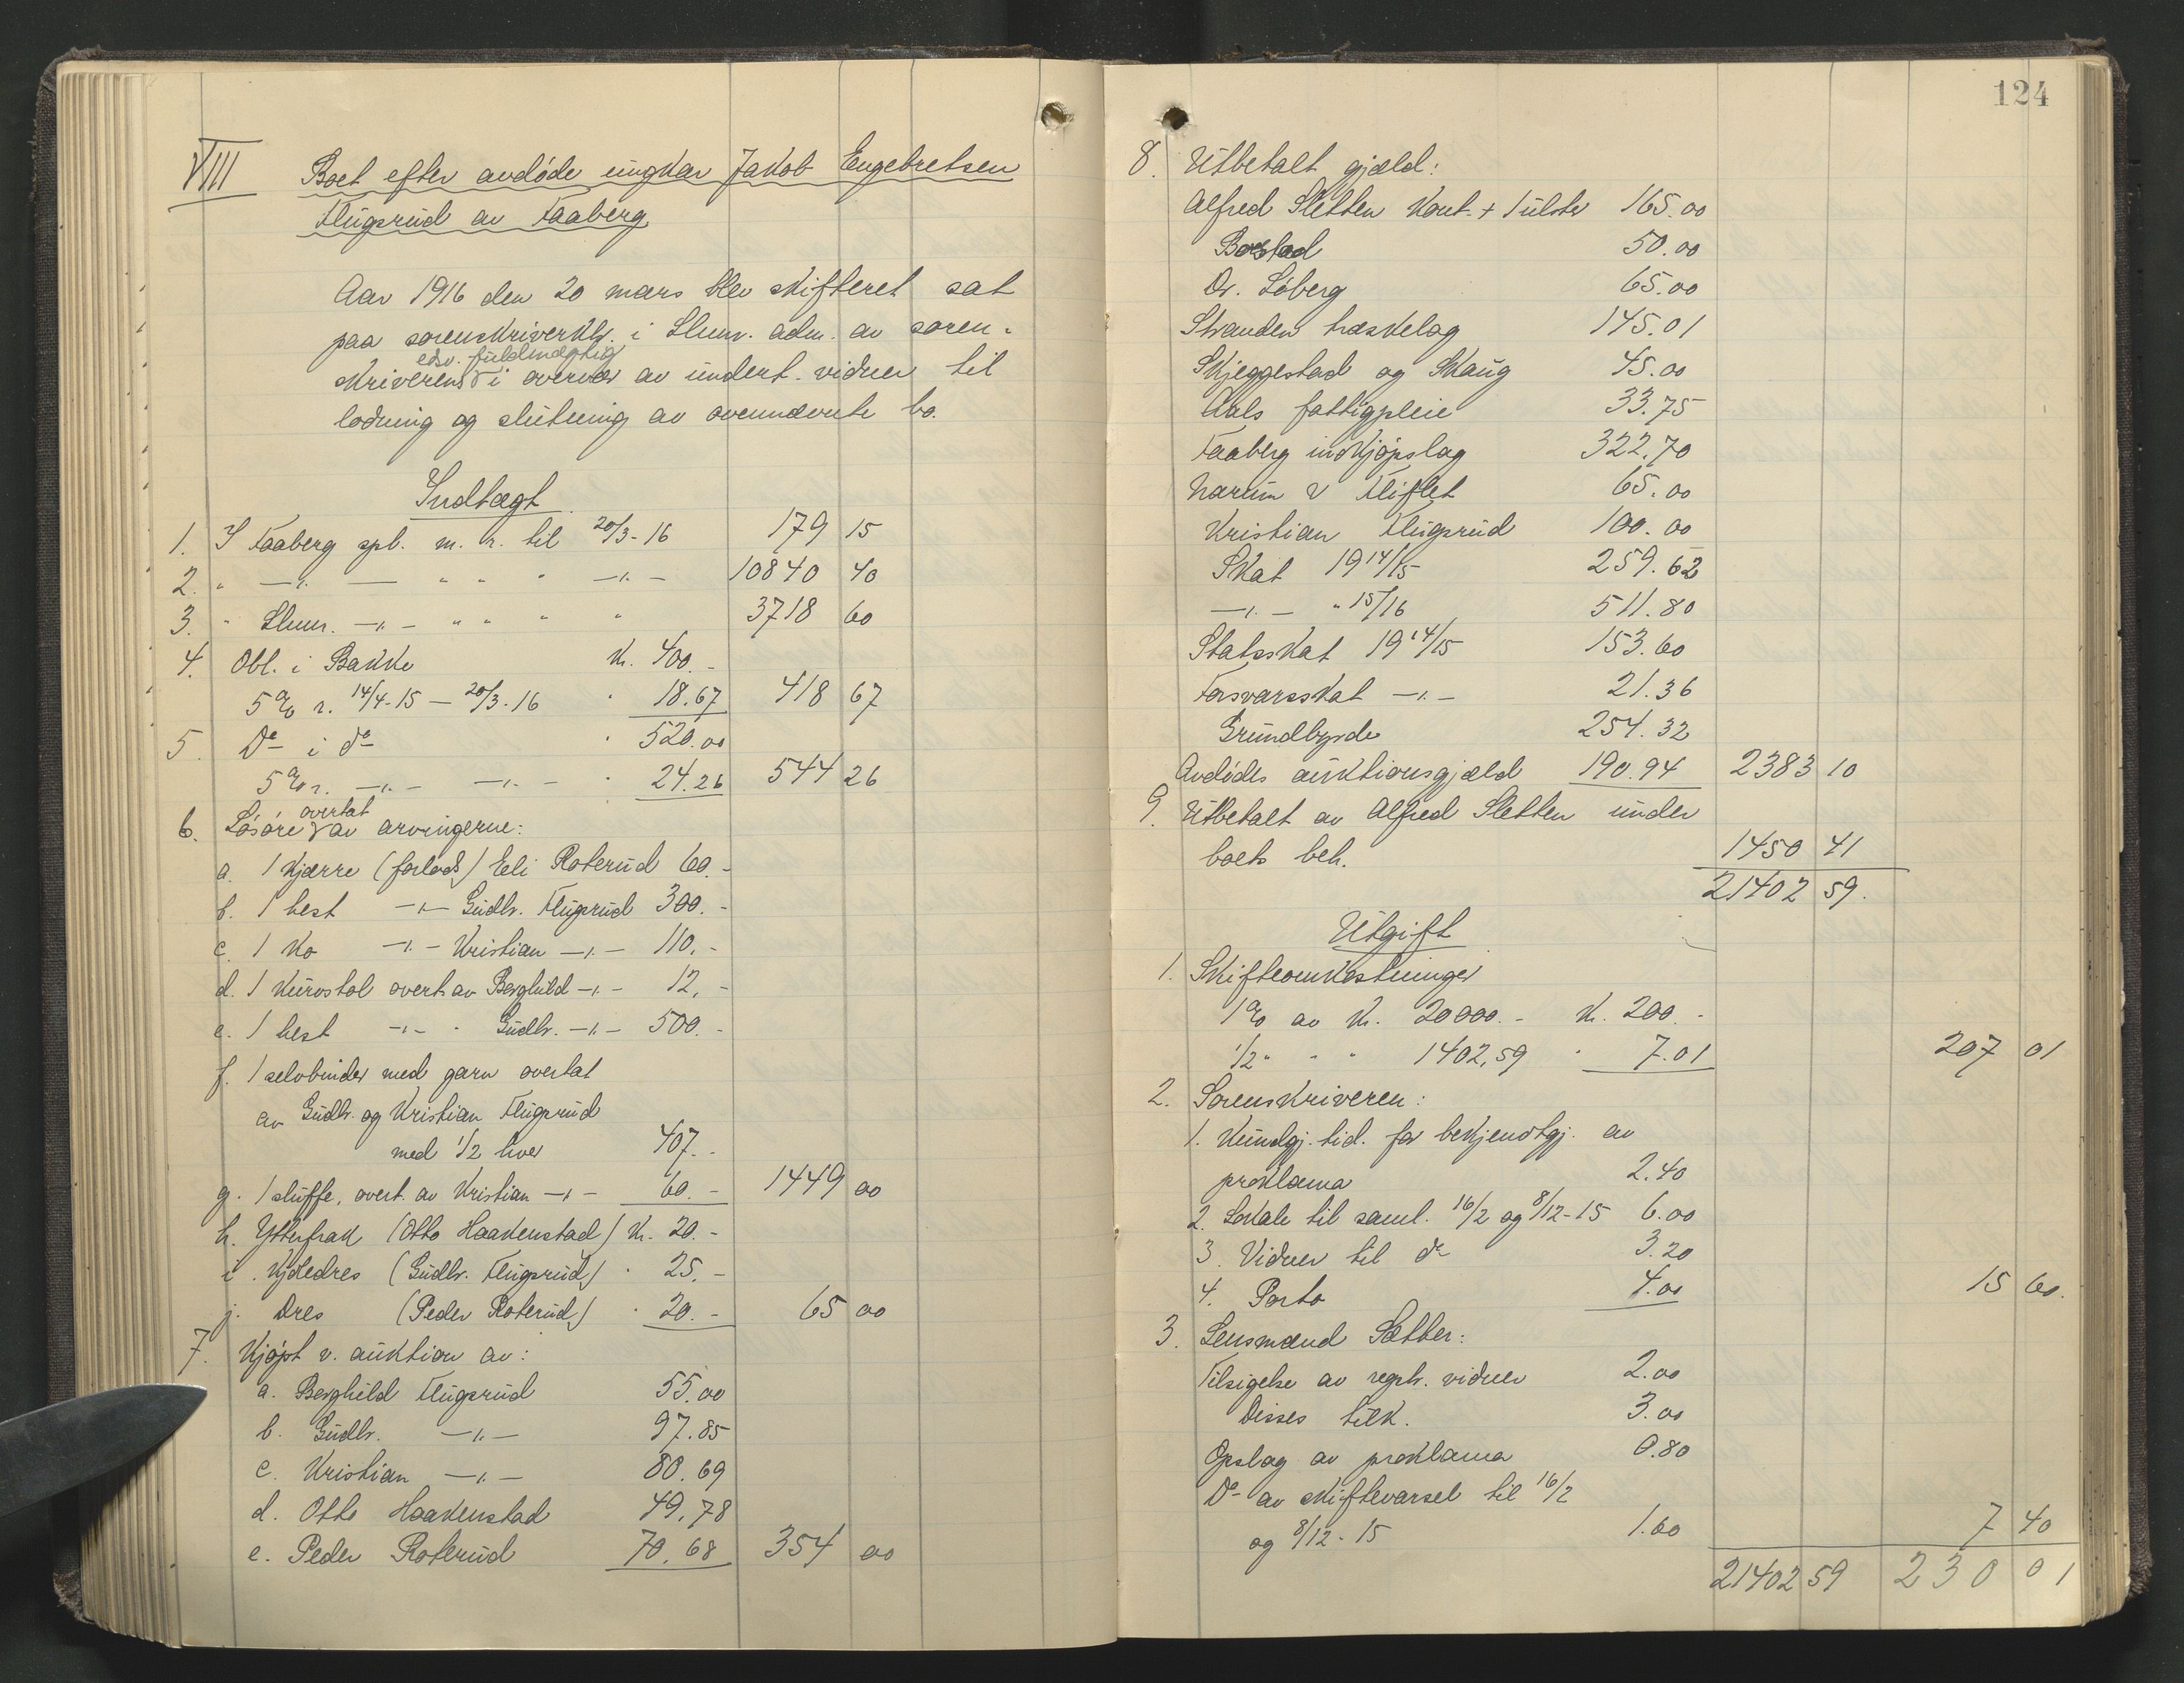 VIII Boet efter avdöde ungkar Jakob Engebretsen
Flugsrud av Faaberg
Aar 1916 den 20 mars blev skifteret sat
paa sorenskriverktr. i Llmr. adm. av soren-
edsv. fuldmægtig
skriverens i overvær av undert. vidner til
lodning og slutning av ovennævnte bo.
Indtægt
1. I Faaberg spb. m. r. til 20/3-16 179 15
2. " —"— " " " —"— 10840 40
3. " Llmr. —"— " " " " 3718 60
4. Obl. i Bakke kr. 400.-
5 % r. 14/4-15 — 20/3-16 " 18.67 418 67
5. Do i do " 520.00
5 % r. —"— —"— " 24.26 544 26
overtat
6. Lösöre av arvingerne:
a. 1 kjærre (forlods) Eli Roterud 60.-
b. 1 hest —"— Gudbr. Flugsrud 300.-
c. 1 ko —"— Kristian —"— 110.-
d. 1 kurvstol overt. av Berghild —"— 12.-
e. 1 hest —"— " Gudbr. —"— 500.-
f. 1 selvbinder med garn overtat
av Gudbr. og Kristian Flugsrud
med 1/2 hver 407.-
g. 1 sluffe, overt. av Kristian —"— 60.- 1449 00
h. Ytterfrak (Otto Haakenstad) kr. 20.-
i. Kjoledres (Gudbr. Flugsrud) " 25.-
j. Dres (Peder Roterud) " 20.- 65 00
7. Kjöpt v. auktion av:
a. Berghild Flugsrud 55.00
b. Gudbr. —"— 97.85
c. Kristian —"— 80.69
d. Otto Haakenstad 49.78
e. Peder Roterud 70.68 354 00
124
8. Utbetalt gjæld:
Alfred Sletten kont. + 1 ulster 165.00
Borstad 50.00
Dr. Löberg 65.00
Stranden træskelag 145.01
Skjeggestad og Skaug 45.00
Aals fattigpleie 33.75
Faaberg indkjöpslag 322.70
Narum v Fliflet 65.00
Kristian Flugsrud 100.00
Skat 1914/15 259.62
—"— " 15/16 511.80
Statsskat 1914/15 153.60
Forsvarsskat —"— 21.36
Grundbyrde 254.32
Avdödes auktionsgjæld 190.94 2383 10
9. Utbetalt av Alfred Sletten under
boets beh. 1450 41
21402 59.
Utgift
1. Skifteomkostninger
1 % av kr. 20000.- kr. 200.-
1/2 " " " 1402,59 " 7.01 207 01
2. Sorenskriveren:
1. Kundgj. tid. for bekjendtgj. av
proklama 2.40
2. Lokale til saml. 16/2 og 8/12-15 6.00
3. Vidner til do 3.20
4. Porto 4.00 15 60.
3. Lensmand Sætter:
Tilsigelse av registr. vidner 2.00
Disses tilk. 3.00
Opslag av proklama 0.80
Do av skiftevarsel til 16/2
og 8/12-15 1.60 7 40
21402 59 230 01